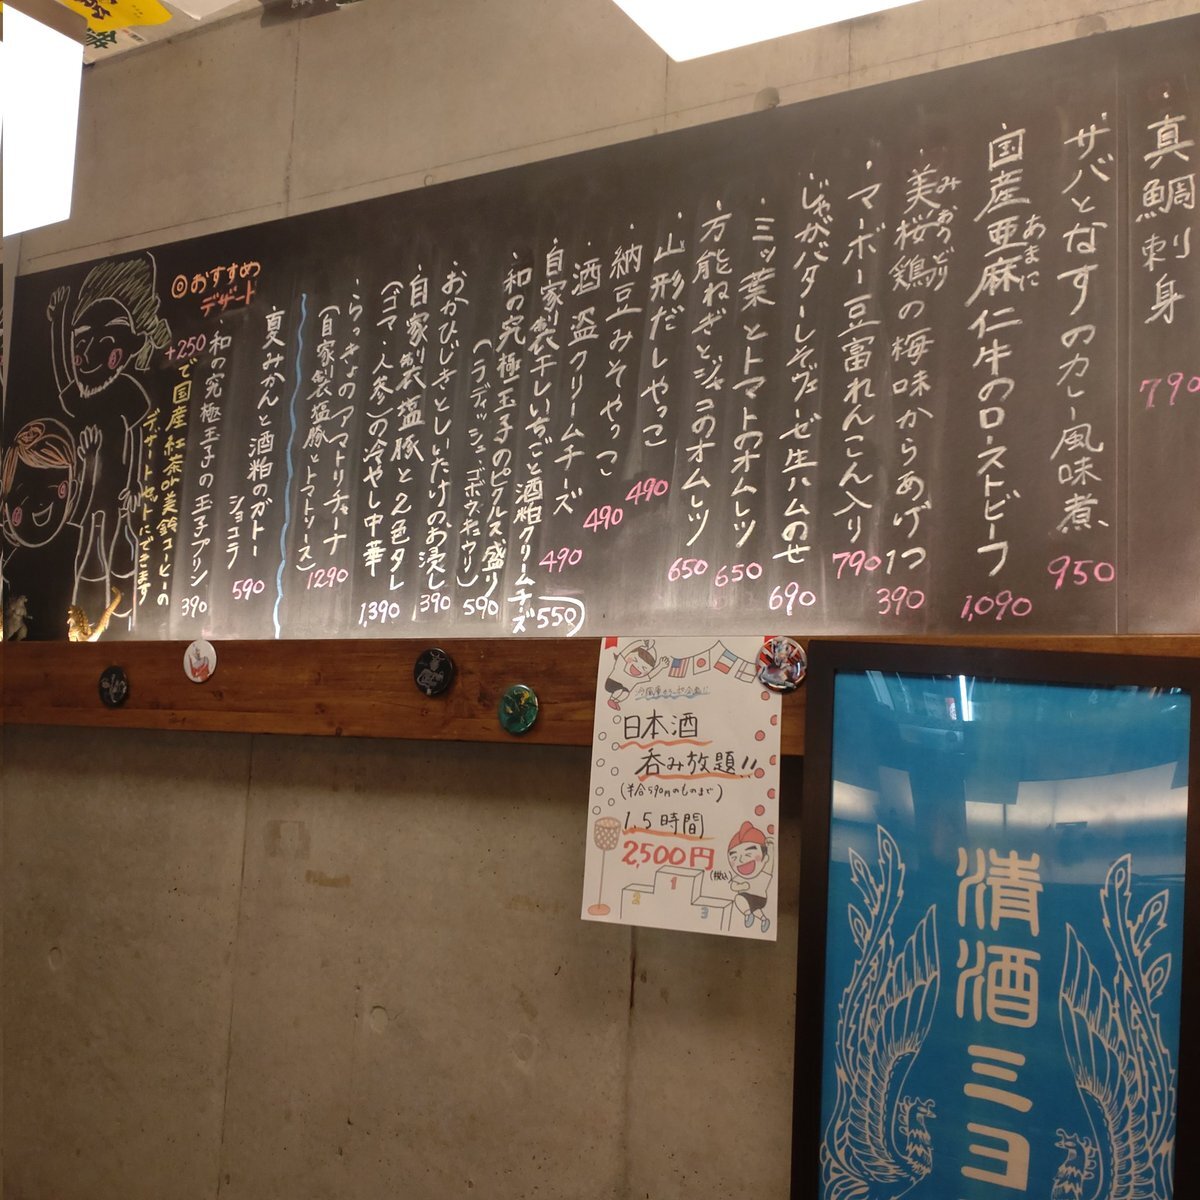 ・真鯛刺身 790
サバとなすのカレー風味煮 950
国産亜麻仁牛のローストビーフ 1,090
あまに
・美桜鶏の梅味からあげ1つ 390
みおうどり
・マーボー豆富れんこん入り 790
・じゃがバターしそヴェーゼ生ハムのせ 690
・ミッ葉とトマトのオムレツ 650
・万能ねぎとジャコのオムレツ 650
・山形だしやっこ 490
・納豆みそやっこ 490
・酒盗クリームチーズ 490
自家製干しいちごと酒粕クリームチーズ 550
・和の究極玉子のピクルス盛り 590
(ラディッシュ、ゴボウ、キュウリ)
・おかひじきとしいたけのお浸し 390
・自家製塩豚と2色タレ
(ゴマ・人参)の冷やし中華 1,390
・らっきょのアマトリチャーナ
(自家製塩豚とトマトソース) 1290
◎おすすめ
デザート
・夏みかんと酒粕のガトー
ショコラ 590
・和の究極玉子の玉子プリン 390
+250で国産紅茶or美鈴コーヒーの
デザートセットにできます
日本酒
呑み放題!!
(半合590円のものまで)
1.5時間
2,500円
(税込)
1
2
3
清酒ミヨ